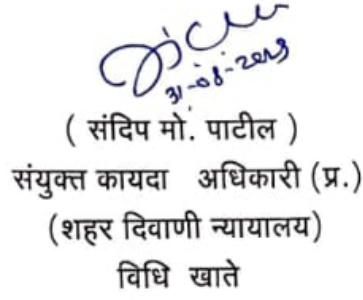 31-08-2023
( संदिप मो. पाटील )
संयुक्त कायदा अधिकारी (प्र.)
(शहर दिवाणी न्यायालय)
विधि खाते